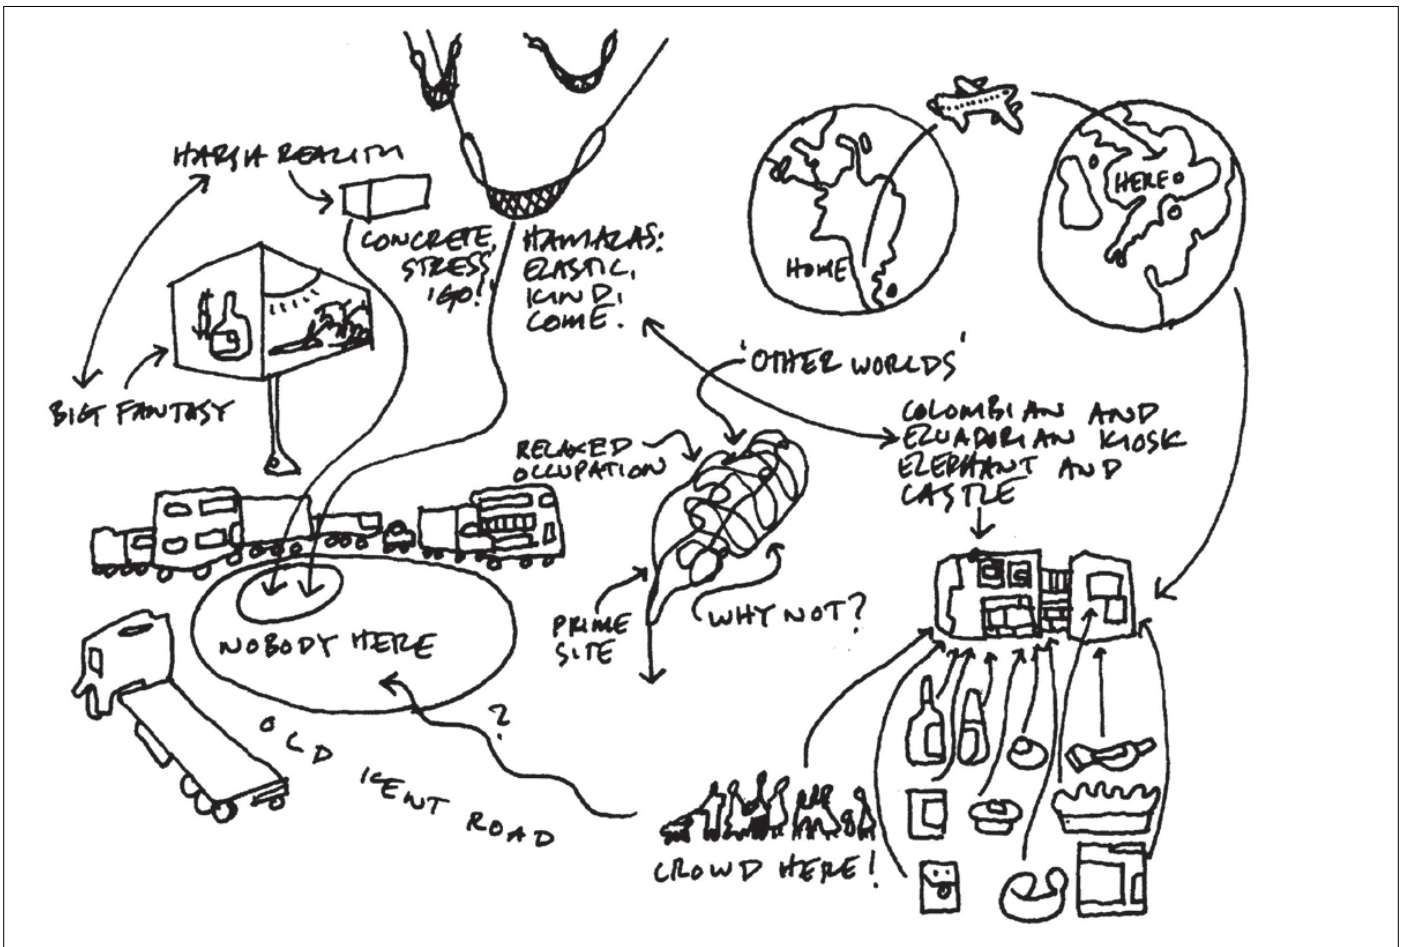 HARSH REALITY
CONCRETE,
STRESS,
'GO!'
HAMACAS:
ELASTIC,
KIND,
COME.
BIG FANTASY
HOME
HERE
'OTHER WORLDS'
RELAXED
OCCUPATION
COLOMBIAN AND
ECUADORIAN KIOSK
ELEPHANT AND
CASTLE
NOBODY HERE
PRIME
SITE
WHY NOT?
?
OLD KENT ROAD
CROWD HERE!